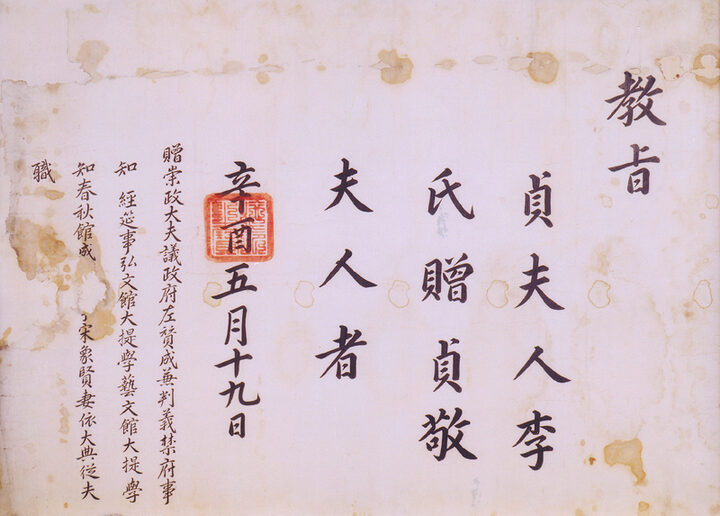 教旨
貞夫人李
氏贈貞敬
夫人者
辛酉五月十九日
贈崇政大夫議政府左贊成兼判義禁府事
知 經筵事弘文館大提學藝文館大提學
知春秋館成 宋象賢妻依大典從夫
職